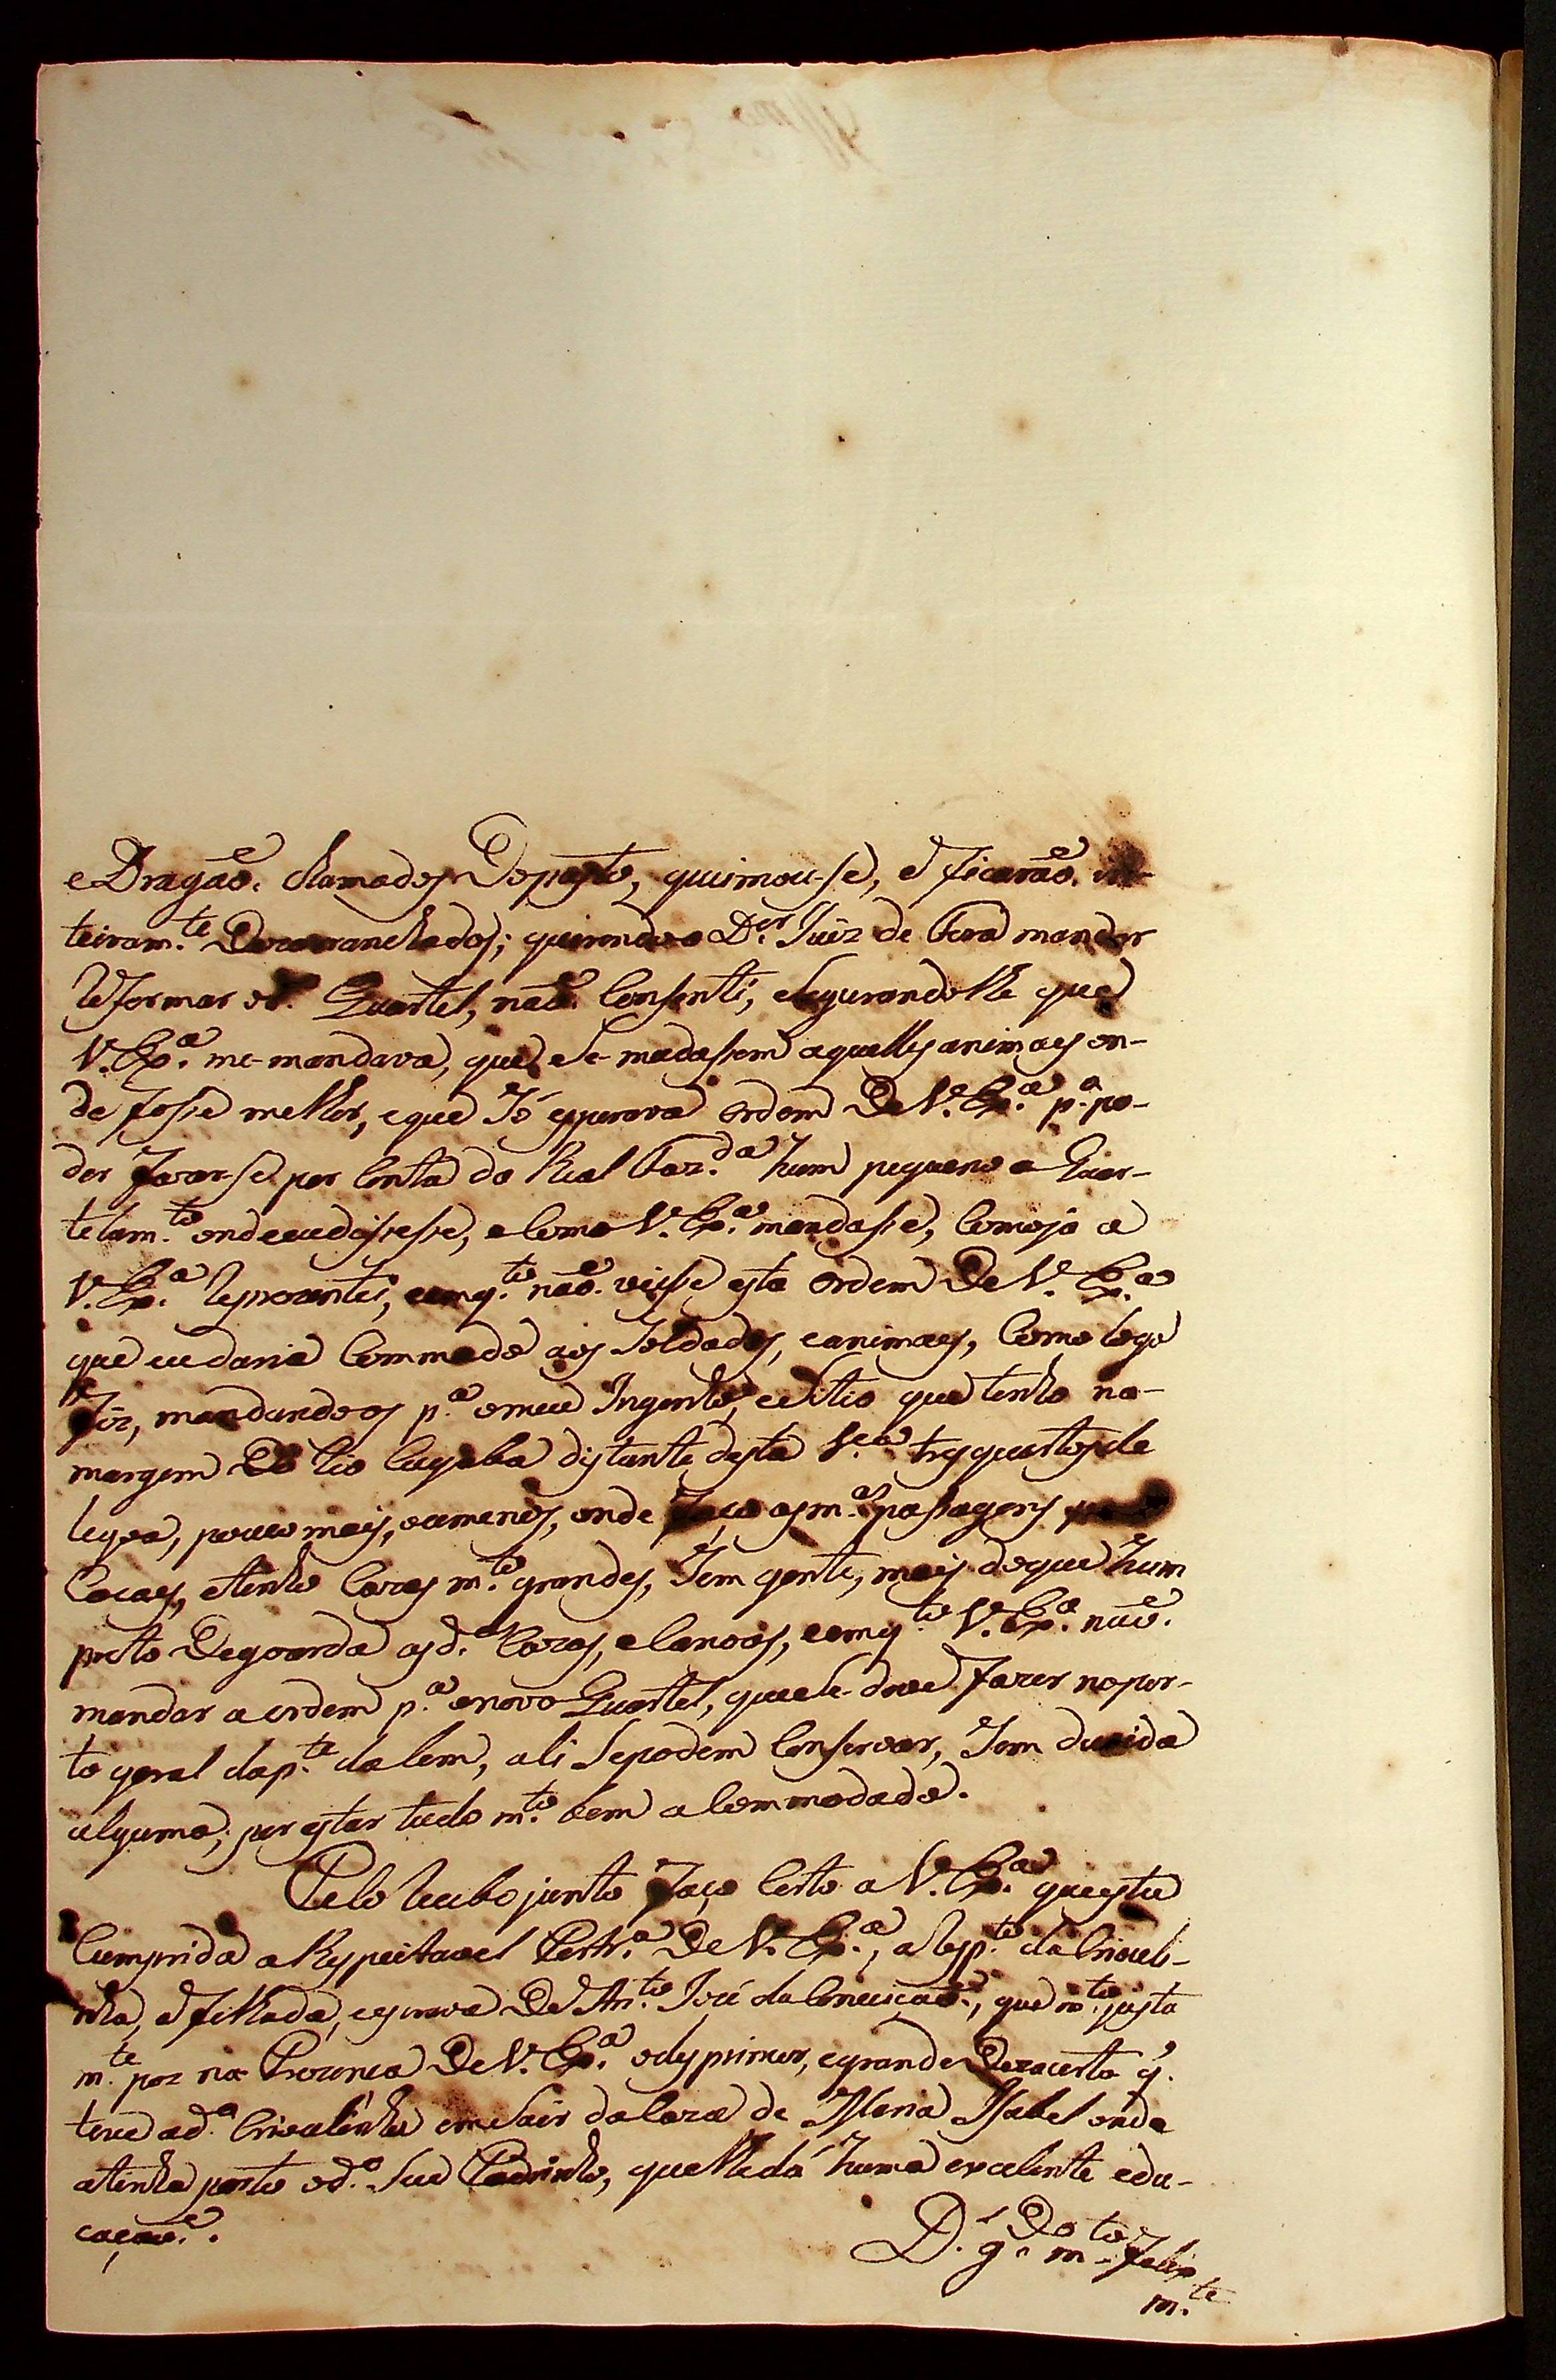 e Dragão. chamados Dopasto, queimou-se, e ficarão. in-
teiram.te Dezarranchados; querendo o D.or Juiz de Fora mandar
Reformar od.o Quartel, não. Consenti, Segurandolhe que
V. Ex.a me-mandava, que Se-mudassem aquelles animaes on-
de fosse melhor, eque Só esperava ordem De V. Ex.a p.a po-
der fazer-se por Conta da Real Faz.da hum pequeno a Quar-
telam.to ondeeudissesse, eComo V. Ex.a mandasse, Comojá a
V. Ex.a Reprezentei, eemq.to não. viesse esta ordem De V. Ex.a
que eudaria Commodo aos Soldados, eanimaes, Como logo
Fiz, mandandoos p.a omeu Ingenho, eSitio que tenho na-
margem Do Rio Cuyaba distante desta V.a tresquartosde
legoa, poucomais, oumenos, onde Faço asm.as passagens
Cocaes, etenho Cazas m.to grandes, Sem gente, mais doque hum
preto Degoarda asd.as Cazas, eCanoas, eemq.to V. Ex.a não.
mandar a ordem p.a onovo Quartel, quese-deve fazer nopor-
to geral dap.te dalem, ali Sepodem Conservar, Sem duvida
alguma; por estar tudo m.to bem acommodado.
Pelo Recibo junto Faço Certo a V. Ex.a queestá
Cumprida a Respeitavel Portr.a De V. Ex.a, aResp.to da Criouli-
nha, afilhada, eescrava De Ant.o José da Conceicão., que m.to justa
m.te poz na Prezença De V. Ex.a odesprimor, egrande Dezacerto q̃.
teve ad.a Crioulinha emSair daCaza de Maria Izabel onde
atinha posto od.o Seu Padrinho, quelhedá huma excelente edu-
cação..
D.s g.de m.to Felix
m.te